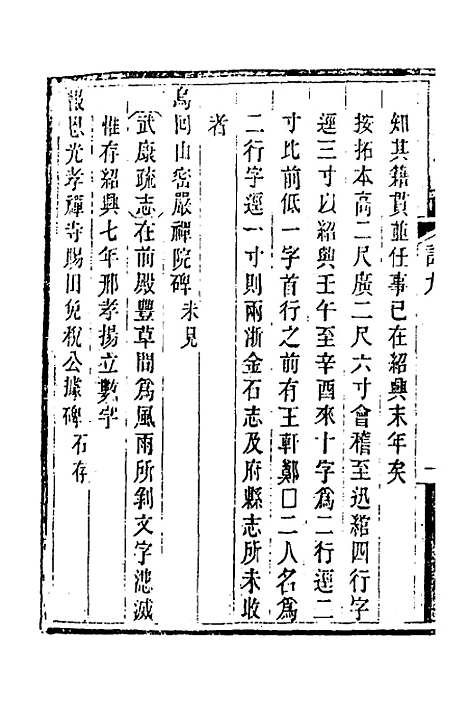 知其籍貫蓝任事已在紹興末年矣
按拓本高二尺廣二尺六寸會稽至迅綰四行字
逕三寸以紹興壬午至辛酉來十字爲二行逕二
寸比前低一字首行之前有王軒鄭□二人名爲
二行字逕一寸則兩浙金石志及府縣志所未收
者
烏回山密嚴禪院碑未見
武康疏志在前殿豐草間爲風雨所剝文字漶滅
惟存紹興七年邢孝揚立數字
報恩光孝禪寺賜田免稅公據碑石存